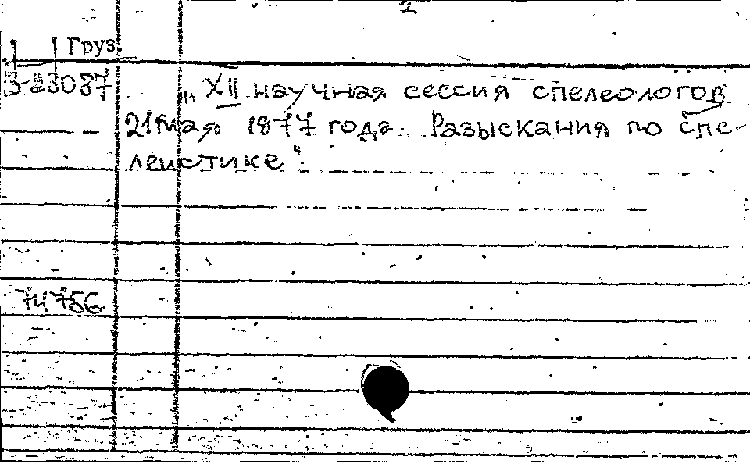 Груз
3-23087
„XII научная сессия спелеологов
21 мая 1877 года. Разыскания по спе-
леистике".
74756